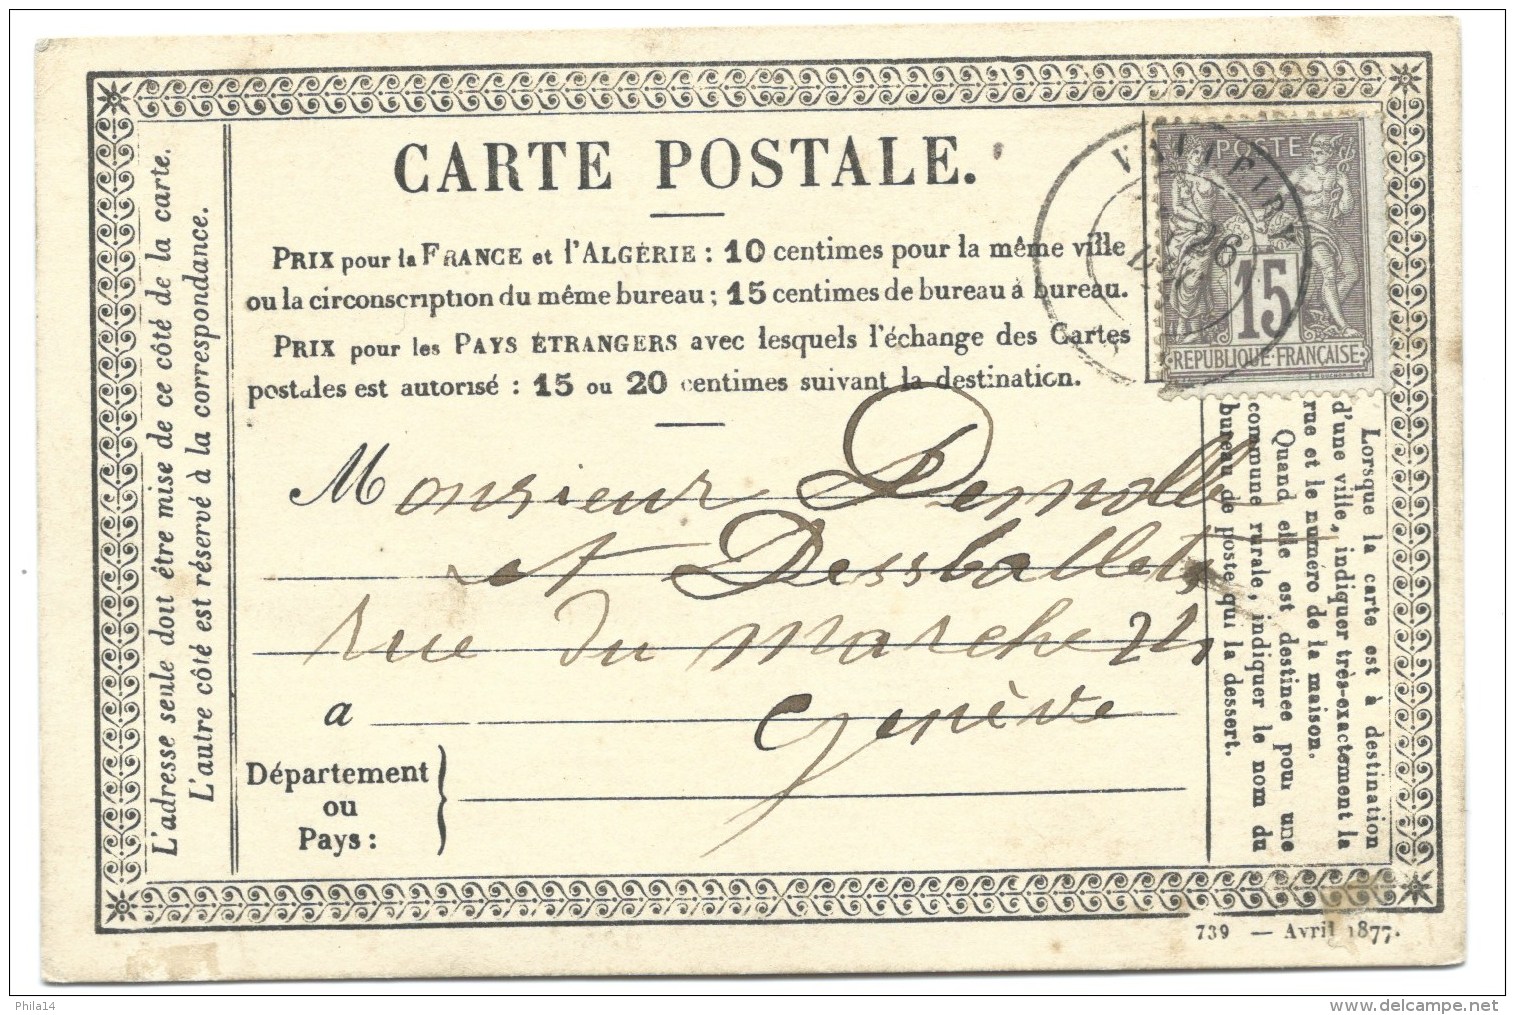 CARTE POSTALE.
PRIX pour la FRANCE et l'ALGÉRIE : 10 centimes pour la même ville
ou la circonscription du même bureau ; 15 centimes de bureau à bureau.
PRIX pour les PAYS ÉTRANGERS avec lesquels l'échange des Cartes
postales est autorisé : 15 ou 20 centimes suivant la destination.
Monsieur
et
rue du Marche
a Genève
Département
ou
Pays :
L'adresse seule doit être mise de ce côté de la carte.
L'autre côté est réservé à la correspondance.
POSTE
15
REPUBLIQUE FRANÇAISE
26
Lorsque la carte est à destination
d'une ville, indiquer très-exactement la
rue et le numéro de la maison.
Quand elle est destinée pour une
commune rurale, indiquer le nom du
bureau de poste qui la dessert.
739 — Avril 1877.
Phila14
www.delcampe.net